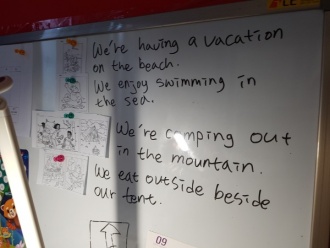 We're having a vacation
on the beach.
We enjoy swimming in
the sea.
We're camping out
in the mountain.
We eat outside beside
our tent.
09